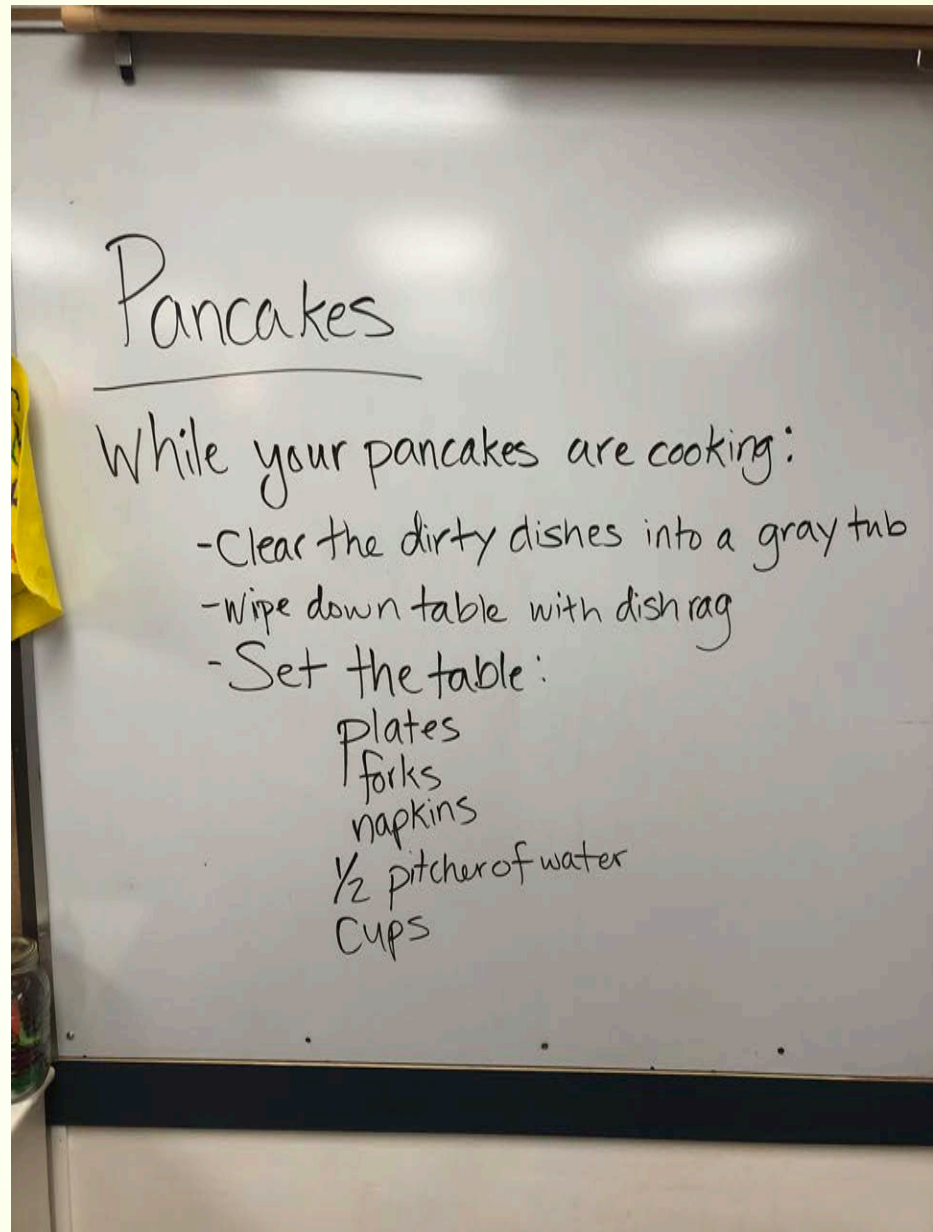 Pancakes
While your pancakes are cooking:
-Clear the dirty dishes into a gray tub
-Wipe down table with dish rag
-Set the table:
plates
forks
napkins
1/2 pitcher of water
Cups